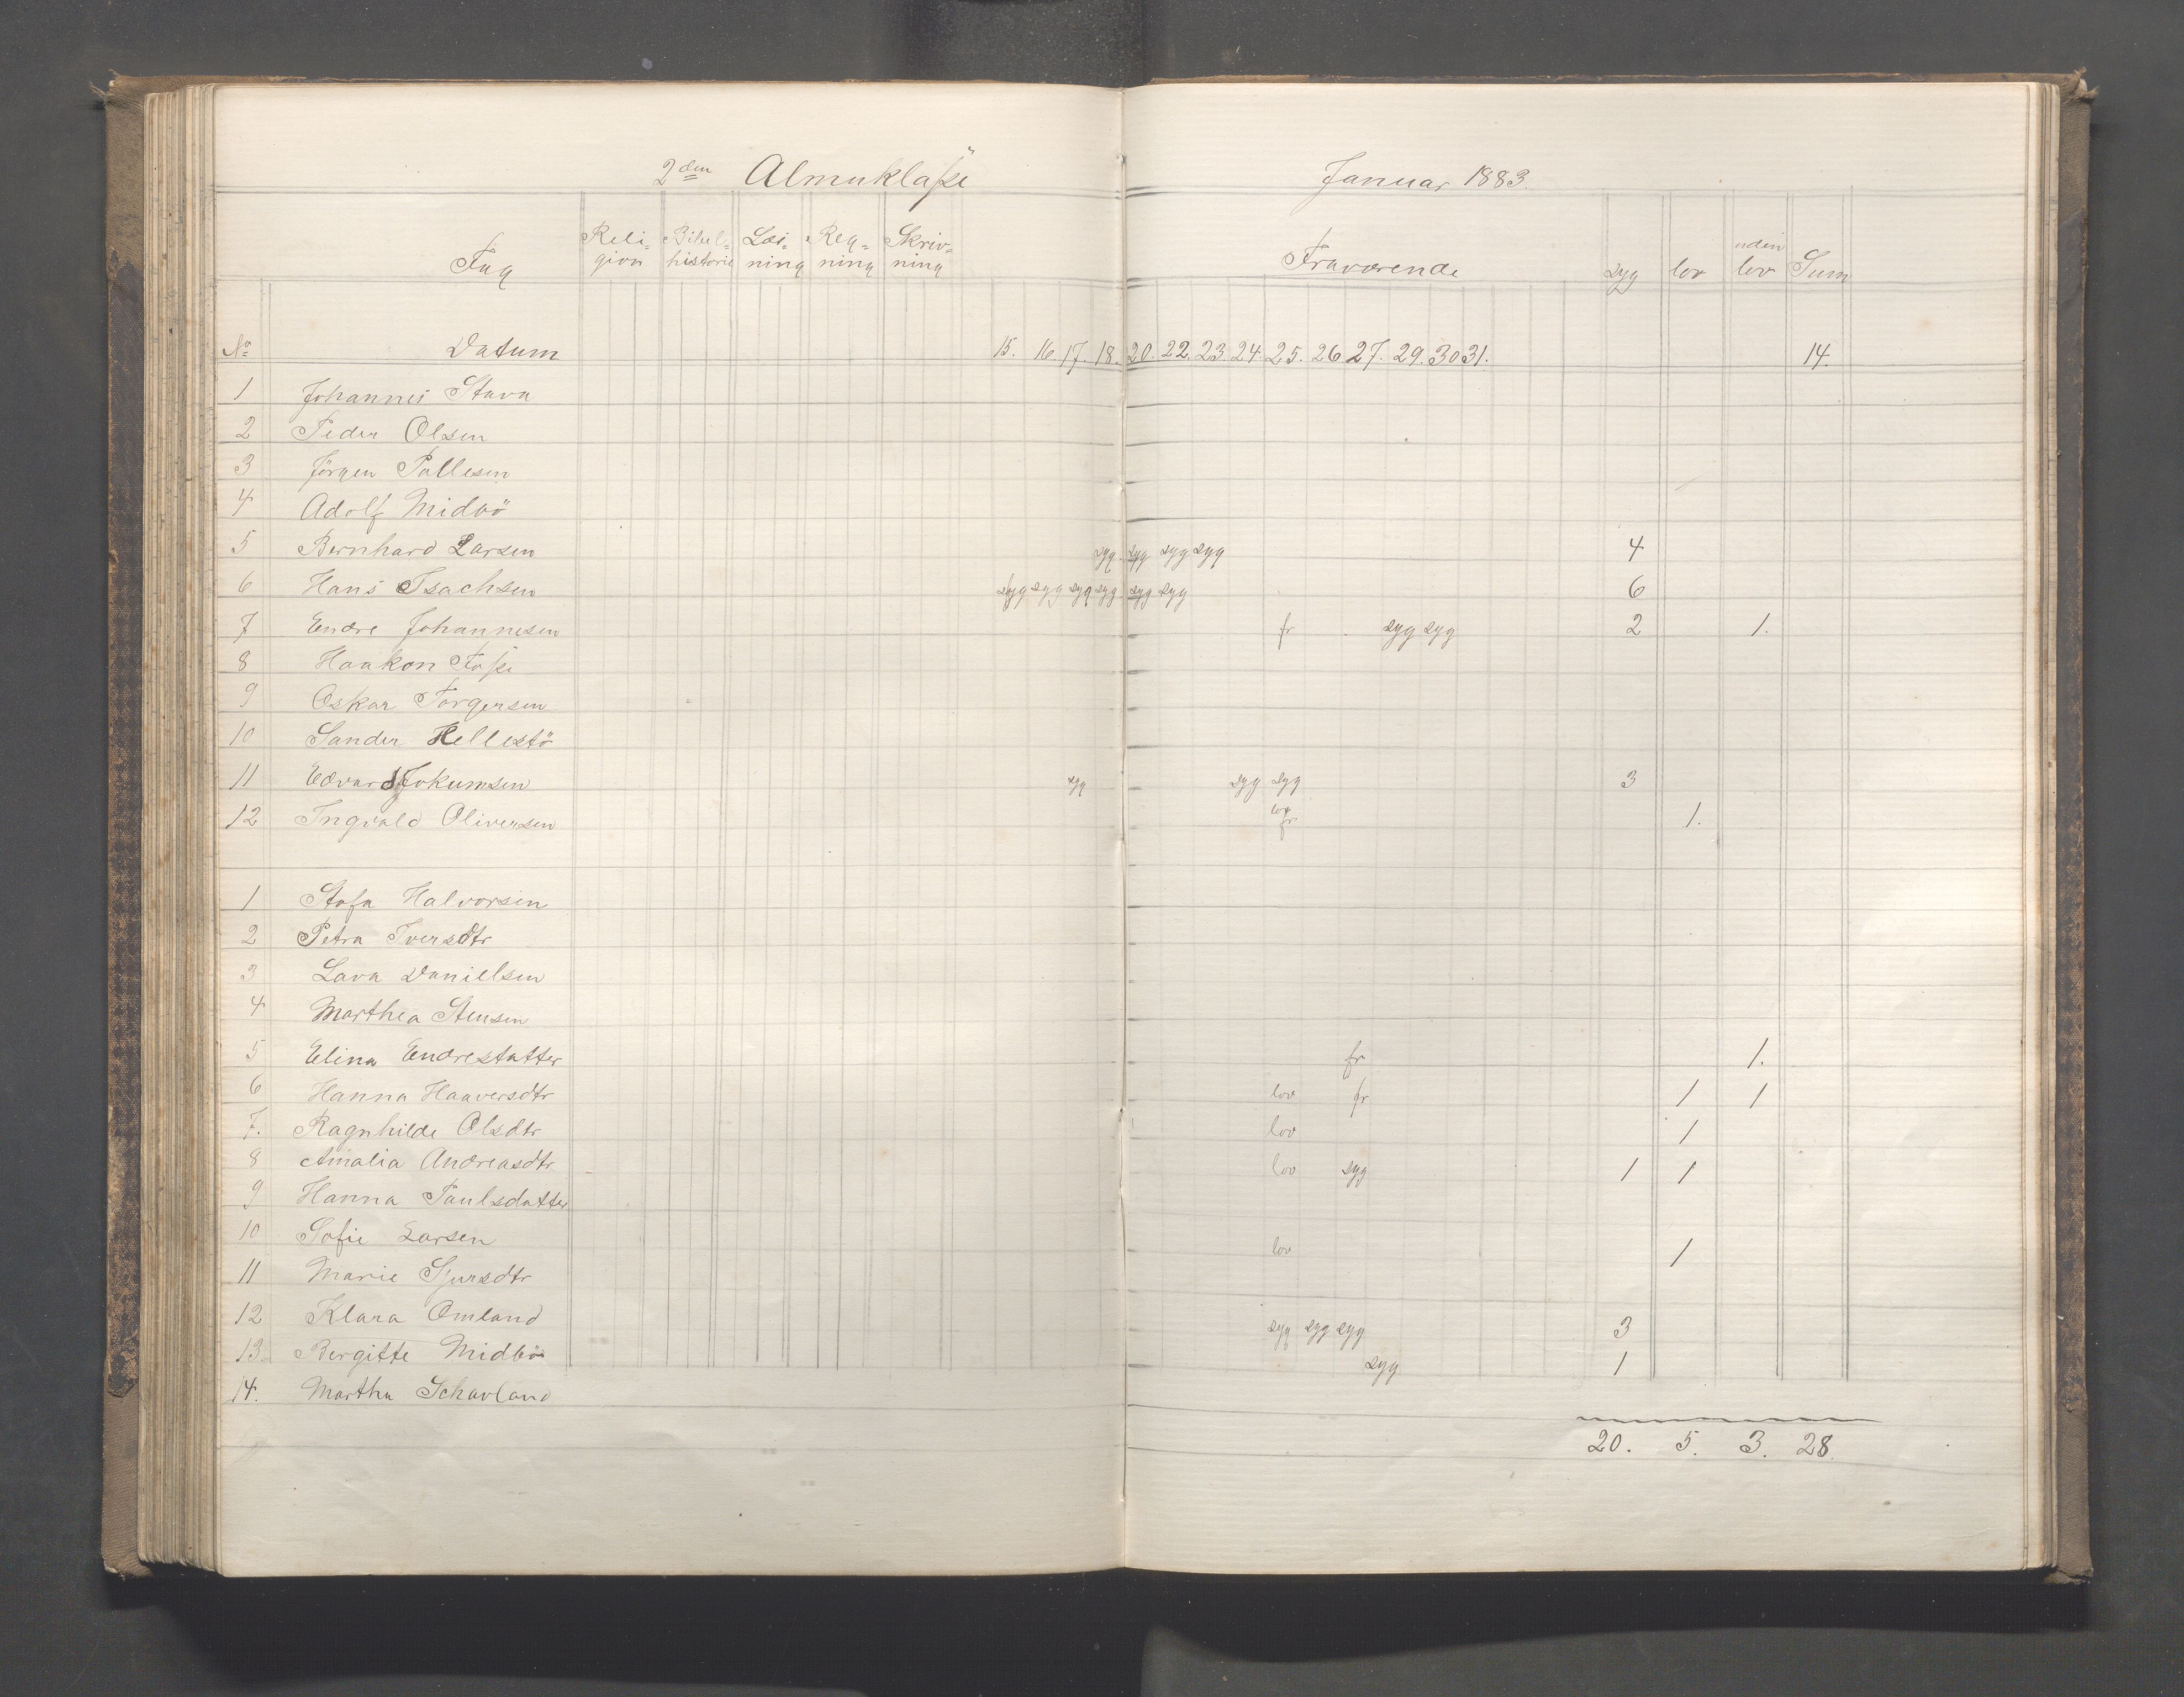 2den Almuklasse Januar 1883.
Fag Reli= gion Bibel= historie Læs= ning Reg= ning Skriv= ning Fraværende syg lov uden lov Sum
No Datum 15. 16. 17. 18. 20. 22. 23. 24. 25. 26 27. 29. 30 31. 14.
1 Johannes Stava
2 Peder Olsen
3 Jörgen Pallesen
4 Adolf Midbö
5 Bernhard Larsen syg. syg syg syg 4
6 Hans Isachsen syg syg syg syg syg syg 6
7 Endre Johannesen fr syg syg 2 1.
8 Haakon Fosse
9 Oskar Torgersen
10 Sander Hellestö
11 Edvard Jokumsen syg syg syg 3
12 Ingvald Oliversen lov fr 1.
1 Stofa Halvorsen
2 Petra Iversdtr
3 Lava Daniellsen
4 Marthea Stensen
5 Elina Endrestatter fr 1.
6 Hanna Haaversdtr lov fr 1 1
7. Ragnhilde Olsdtr lov 1
8 Amalia Andreasdtr lov syg 1 1
9 Hanna Paulsdatter
10 Sofie Larsen lov 1
11 Marie Sjursdtr
12 Klara Omland syg syg syg 3
13. Bergitte Midbö syg 1
14. Martha Schavland
20. 5. 3. 28.